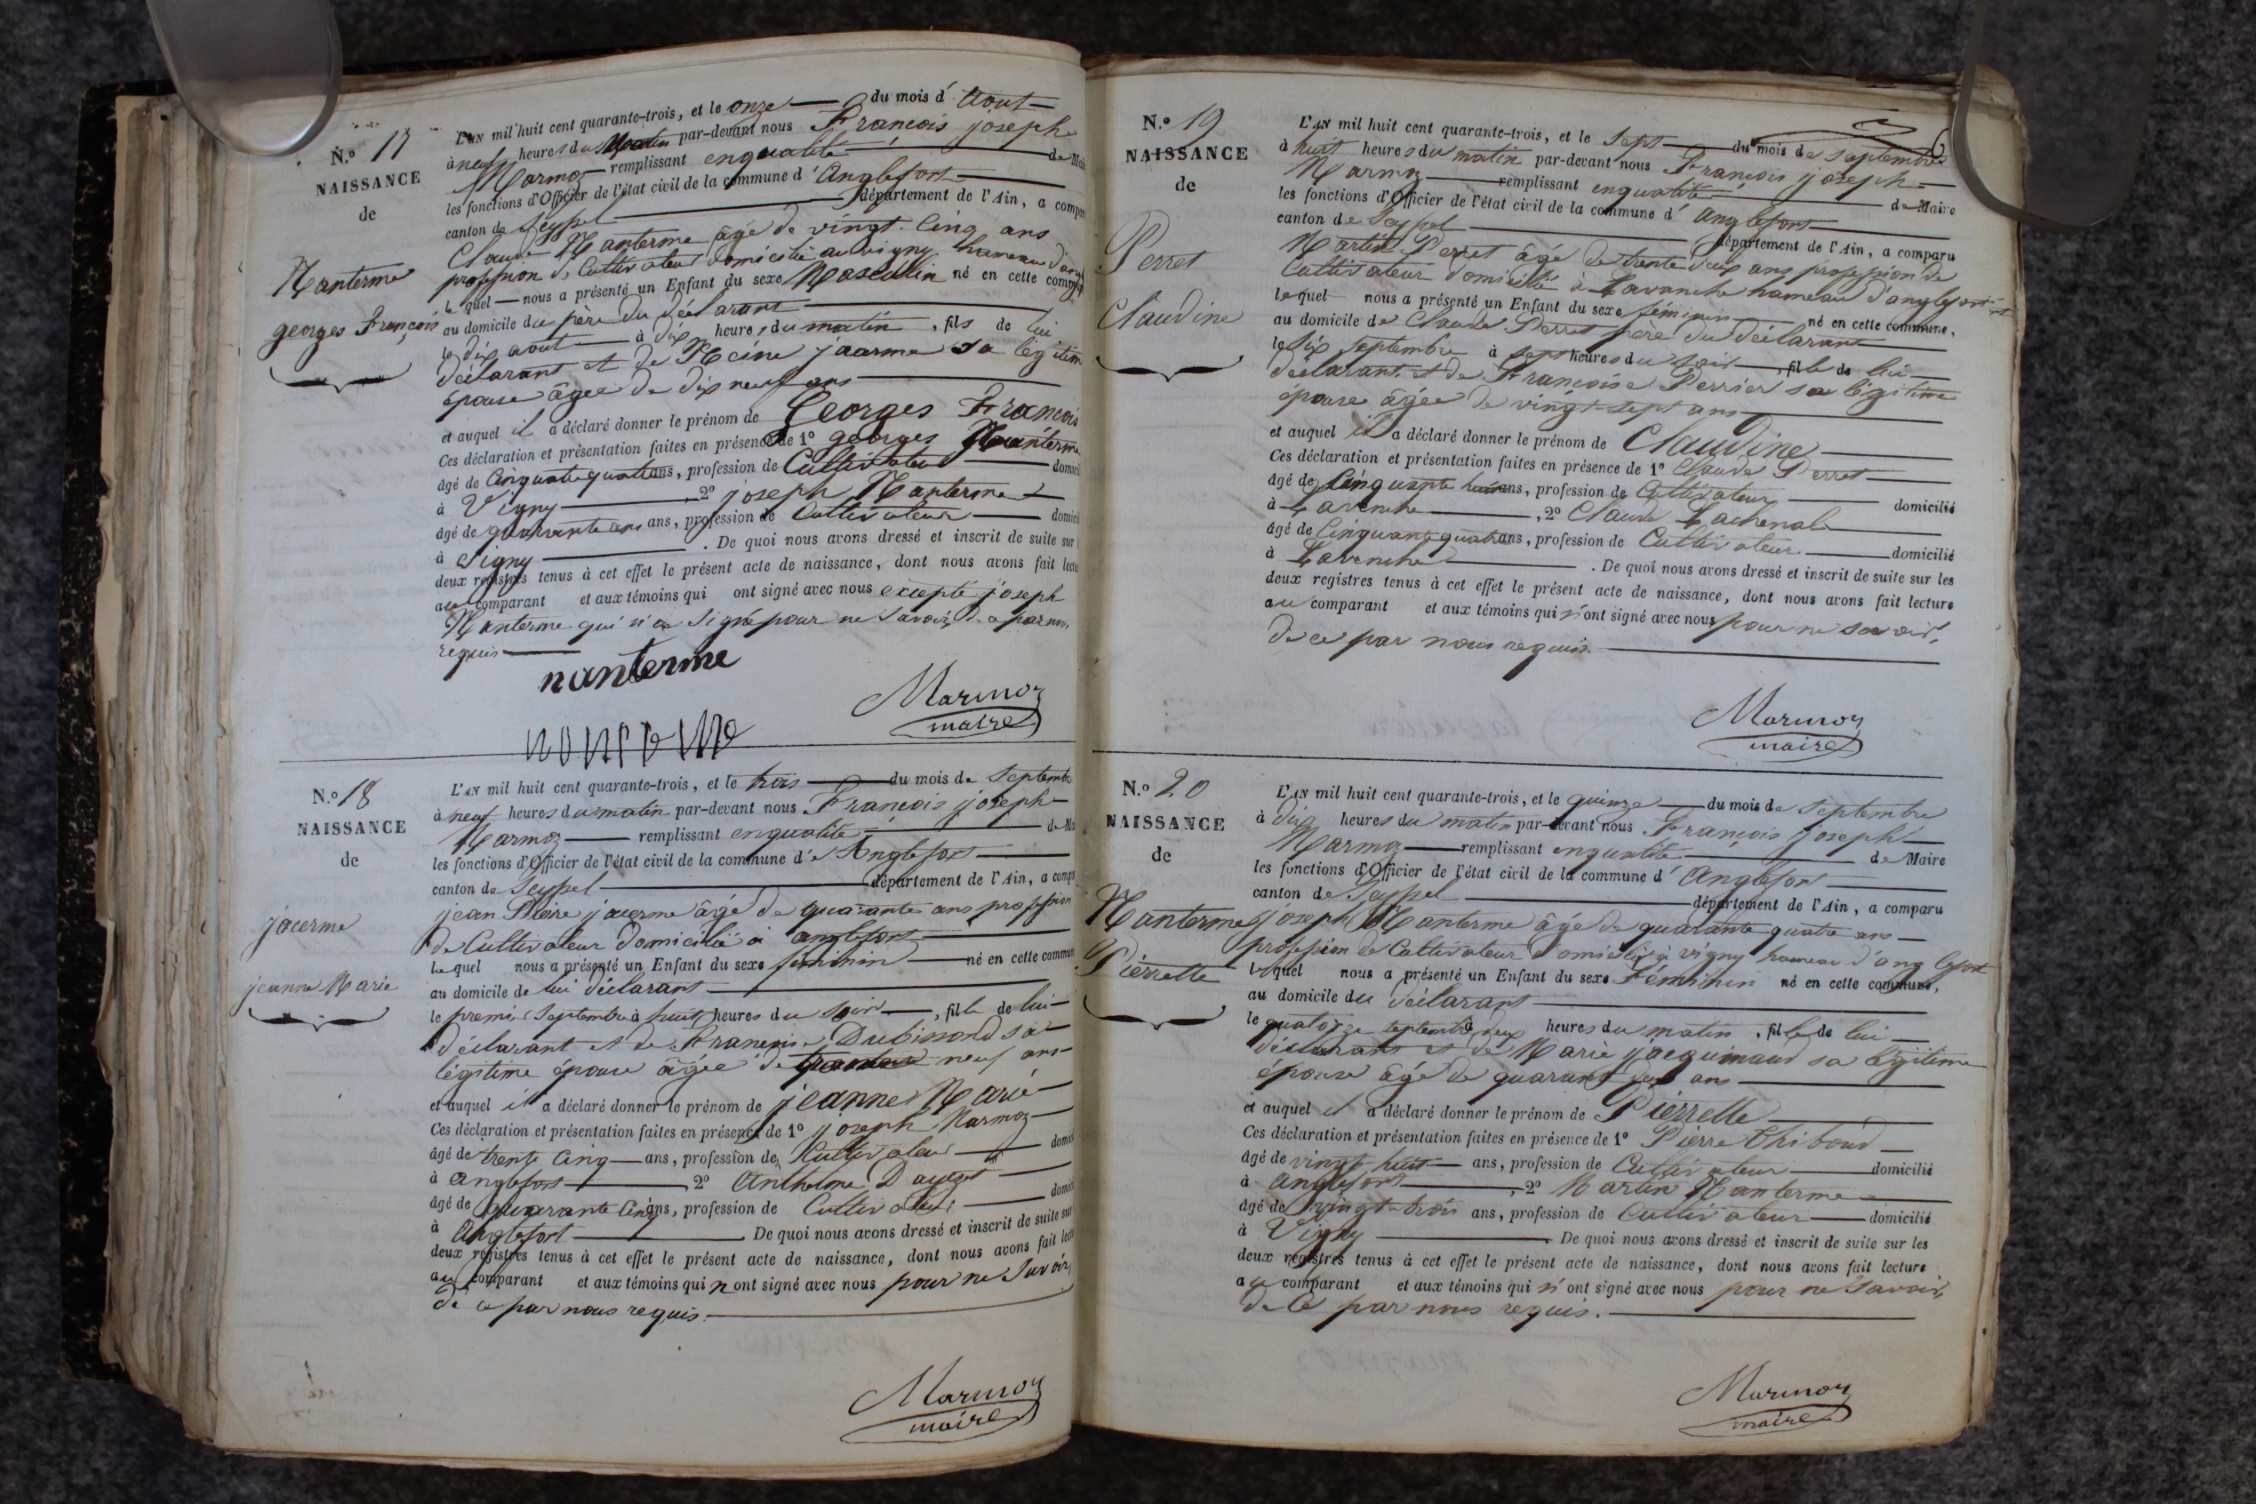 N.º 17
NAISSANCE
de
Nanterme
georges François
L'AN mil huit cent quarante-trois, et le onze du mois d'Août
à neuf heures du Matin par-devant nous François joseph
Marmoz remplissant en qualité de Mai
les fonctions d'Officier de l'état civil de la commune d'Anglefort
canton de Seyssel département de l'Ain, a compa
Claude Nanterme âgé de vingt-Cinq ans
profession de Cultivateur domicilié au vigny hameau d'ang
lequel nous a présenté un Enfant du sexe Masculin né en cette commu
au domicile du père du déclarant
le dix août à dix heures du matin, fils de lui
déclarant et de jacerme sa légitime
épouse âgée de dix neuf ans
et auquel il a déclaré donner le prénom de Georges François
Ces déclaration et présentation faites en présence de 1º georges Nanterme
âgé de Cinquante quatre ans, profession de Cultivateur domicil
à Vigny, 2º joseph Nanterme
âgé de quarante ans ans, profession de Cultivateur domicil
à vigny. De quoi nous avons dressé et inscrit de suite sur
deux registres tenus à cet effet le présent acte de naissance, dont nous avons fait lectu
au comparant et aux témoins qui ont signé avec nous excepté joseph
Nanterme qui n'a signé pour ne savoir, de ce par nous
requis
nanterme
Marmoz
maire
N.º 18
NAISSANCE
de
jacerme
jeanne Marie
L'AN mil huit cent quarante-trois, et le trois du mois de Septemb
à neuf heures du matin par-devant nous François joseph
Marmoz remplissant en qualité de Ma
les fonctions d'Officier de l'état civil de la commune d'Anglefort
canton de Seyssel département de l'Ain, a compa
jean Pierre jacerme âgé de quarante ans profession
de Cultivateur domicilié à anglefort
lequel nous a présenté un Enfant du sexe féminin né en cette commun
au domicile de lui déclarant
le premier Septembre à huit heures du soir, fille de lui
déclarant et de Françoise sa
légitime épouse âgée de neuf ans
et auquel il a déclaré donner le prénom de jeanne Marie
Ces déclaration et présentation faites en présence de 1º joseph Marmoz
âgé de trente cinq ans, profession de Cultivateur domici
à Anglefort, 2º Anthelme
âgé de quarante Cinq ans, profession de Cultivateur domici
à Anglefort. De quoi nous avons dressé et inscrit de suite sur
deux registres tenus à cet effet le présent acte de naissance, dont nous avons fait lect
au comparant et aux témoins qui n'ont signé avec nous pour ne savoir,
de ce par nous requis.
Marmoz
maire
6
N.º 19
NAISSANCE
de
Perret
Claudine
L'AN mil huit cent quarante-trois, et le sept du mois de septembre
à huit heures du matin par-devant nous François joseph
Marmoz remplissant en qualité de Maire
les fonctions d'Officier de l'état civil de la commune d'Anglefort
canton de Seyssel département de l'Ain, a comparu
Martin Perret âgé de trente deux ans profession de
Cultivateur domicilié à Lavanche hameau d'anglefort
lequel nous a présenté un Enfant du sexe féminin né en cette commune,
au domicile de Claude Perret père du déclarant
le six septembre à sept heures du soir, fille de lui
déclarant et de Françoise Perrier sa légitime
épouse âgée de vingt-sept ans
et auquel il a déclaré donner le prénom de Claudine
Ces déclaration et présentation faites en présence de 1º Claude Perret
âgé de Cinquante huit ans, profession de Cultivateur domicilié
à Lavanche, 2º Claude Lachenal
âgé de Cinquante quatre ans, profession de Cultivateur domicilié
à Lavanche. De quoi nous avons dressé et inscrit de suite sur les
deux registres tenus à cet effet le présent acte de naissance, dont nous avons fait lecture
au comparant et aux témoins qui n'ont signé avec nous pour ne savoir,
de ce par nous requis.
Marmoz
maire
N.º 20
NAISSANCE
de
Nanterme
Pierrette
L'AN mil huit cent quarante-trois, et le quinze du mois de septembre
à dix heures du matin par-devant nous François joseph
Marmoz remplissant en qualité de Maire
les fonctions d'Officier de l'état civil de la commune d'Anglefort
canton de Seyssel département de l'Ain, a comparu
joseph Nanterme âgé de quarante quatre ans
profession de Cultivateur domicilié à vigny hameau d'anglefort
lequel nous a présenté un Enfant du sexe Féminin né en cette commune,
au domicile du déclarant
le quatorze septembre à deux heures du matin, fille de lui
déclarant et de Marie jacquinaud sa légitime
épouse âgé de quarante deux ans
et auquel il a déclaré donner le prénom de Pierrette
Ces déclaration et présentation faites en présence de 1º Pierre Thiboud
âgé de vingt huit ans, profession de Cultivateur domicilié
à Anglefort, 2º Martin Nanterme
âgé de vingt-trois ans, profession de Cultivateur domicilié
à Vigny. De quoi nous avons dressé et inscrit de suite sur les
deux registres tenus à cet effet le présent acte de naissance, dont nous avons fait lecture
au comparant et aux témoins qui n'ont signé avec nous pour ne savoir,
de ce par nous requis.
Marmoz
maire